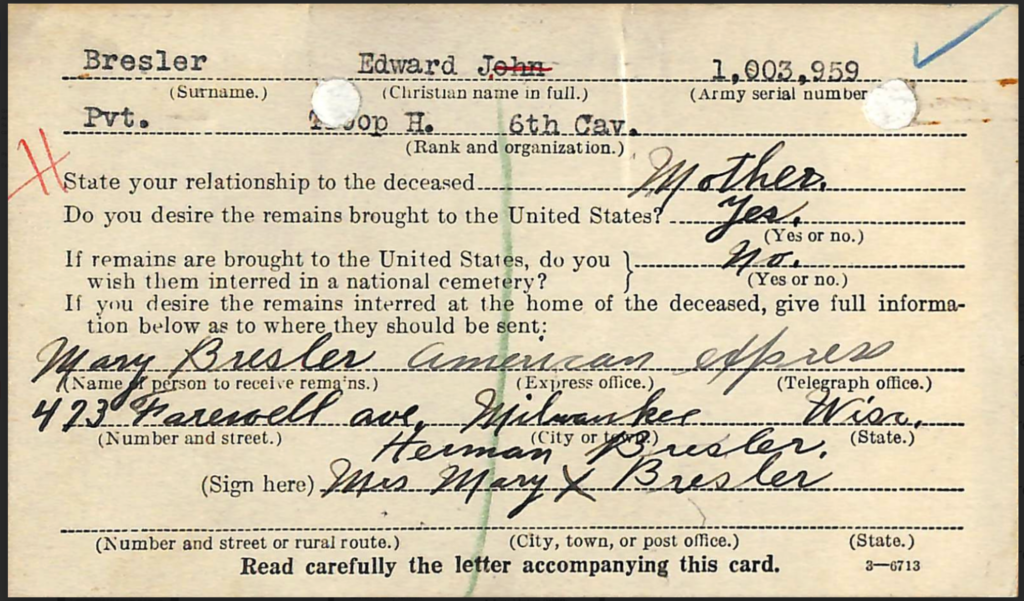 Bresler Edward John 1,003,959
(Surname.) (Christian name in full.) (Army serial number
Pvt. Troop H. 6th Cav.
(Rank and organization.)
H
State your relationship to the deceased Mother.
Do you desire the remains brought to the United States? Yes.
(Yes or no.)
If remains are brought to the United States, do you No.
wish them interred in a national cemetery? (Yes or no.)
If you desire the remains interred at the home of the deceased, give full informa-
tion below as to where they should be sent:
Mary Bresler American express
(Name of person to receive remains.) (Express office.) (Telegraph office.)
473 Farewell ave, Milwaukee Wisc.
(Number and street.) (City or town.) (State.)
Herman Bresler.
(Sign here) Mrs Mary X Bresler
(Number and street or rural route.) (City, town, or post office.) (State.)
Read carefully the letter accompanying this card. 3—6713